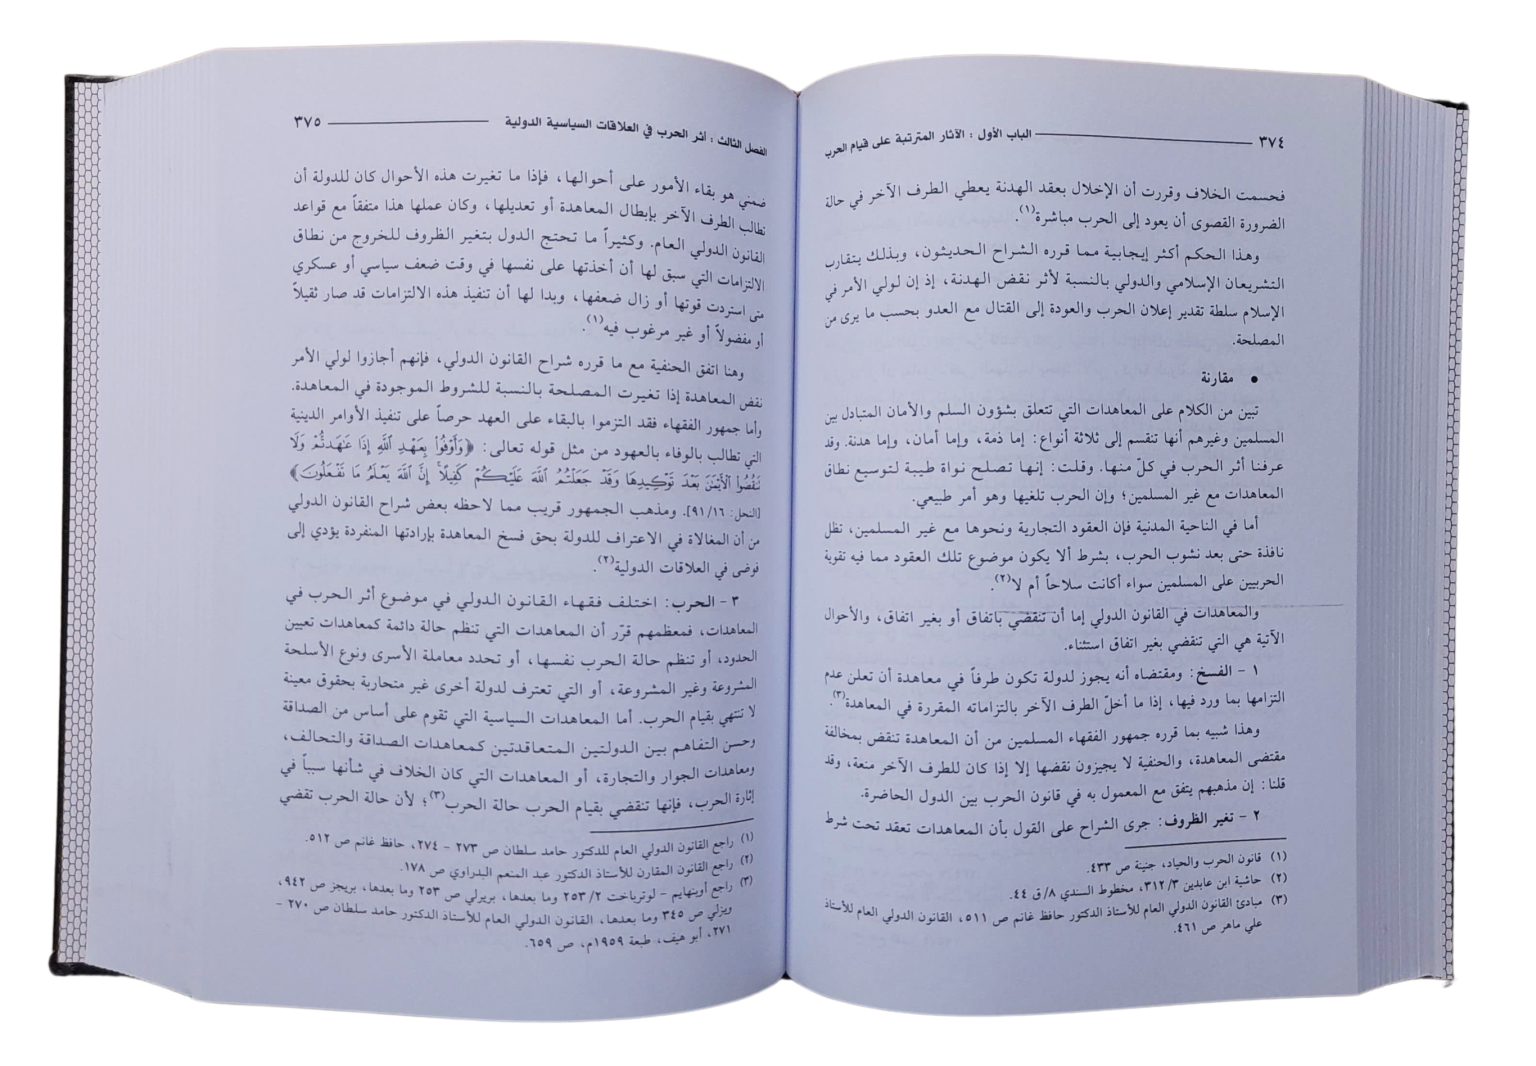 ٣٧٤ الباب الأول : الآثار المترتبة على قيام الحرب
فحسمت الخلاف وقررت أن الإخلال بعقد الهدنة يعطي الطرف الآخر في حالة
الضرورة القصوى أن يعود إلى الحرب مباشرة(١).
وهذا الحكم أكثر إيجابية مما قرره الشراح الحديثون، وبذلك يتقارب
التشريعان الإسلامي والدولي بالنسبة لأثر نقض الهدنة، إذ إن لولي الأمر في
الإسلام سلطة تقدير إعلان الحرب والعودة إلى القتال مع العدو بحسب ما يرى من
المصلحة.
• مقارنة
تبين من الكلام على المعاهدات التي تتعلق بشؤون السلم والأمان المتبادل بين
المسلمين وغيرهم أنها تنقسم إلى ثلاثة أنواع: إما ذمة، وإما أمان، وإما هدنة. وقد
عرفنا أثر الحرب في كلّ منها. وقلت: إنها تصلح نواة طيبة لتوسيع نطاق
المعاهدات مع غير المسلمين؛ وإن الحرب تلغيها وهو أمر طبيعي.
أما في الناحية المدنية فإن العقود التجارية ونحوها مع غير المسلمين، تظل
نافذة حتى بعد نشوب الحرب، بشرط ألا يكون موضوع تلك العقود مما فيه تقوية
الحربيين على المسلمين سواء أكانت سلاحاً أم لا(٢).
والمعاهدات في القانون الدولي إما أن تنقضي باتفاق أو بغير اتفاق، والأحوال
الآتية هي التي تنقضي بغير اتفاق استثناء.
١ - الفسخ: ومقتضاه أنه يجوز لدولة تكون طرفاً في معاهدة أن تعلن عدم
التزامها بما ورد فيها، إذا ما أخلّ الطرف الآخر بالتزاماته المقررة في المعاهدة(٣).
وهذا شبيه بما قرره جمهور الفقهاء المسلمين من أن المعاهدة تنقض بمخالفة
مقتضى المعاهدة، والحنفية لا يجيزون نقضها إلا إذا كان للطرف الآخر منعة، وقد
قلنا: إن مذهبهم يتفق مع المعمول به في قانون الحرب بين الدول الحاضرة.
٢ - تغير الظروف: جرى الشراح على القول بأن المعاهدات تعقد تحت شرط
(١) قانون الحرب والحياد، جنينة ص ٤٣٣.
(٢) حاشية ابن عابدين ٣١٢/٣، مخطوط السندي ٨/ق ٤٤.
(٣) مبادئ القانون الدولي العام للأستاذ الدكتور حافظ غانم ص ٥١١، القانون الدولي العام للأستاذ
علي ماهر ص ٤٦١.
الفصل الثالث : أثر الحرب في العلاقات السياسية الدولية ٣٧٥
ضمني هو بقاء الأمور على أحوالها، فإذا ما تغيرت هذه الأحوال كان للدولة أن
تطالب الطرف الآخر بإبطال المعاهدة أو تعديلها، وكان عملها هذا متفقاً مع قواعد
القانون الدولي العام. وكثيراً ما تحتج الدول بتغير الظروف للخروج من نطاق
الالتزامات التي سبق لها أن أخذتها على نفسها في وقت ضعف سياسي أو عسكري
متى استردت قوتها أو زال ضعفها، وبدا لها أن تنفيذ هذه الالتزامات قد صار ثقيلاً
أو مفضولاً أو غير مرغوب فيه(١).
وهنا اتفق الحنفية مع ما قرره شراح القانون الدولي، فإنهم أجازوا لولي الأمر
نقض المعاهدة إذا تغيرت المصلحة بالنسبة للشروط الموجودة في المعاهدة.
وأما جمهور الفقهاء فقد التزموا بالبقاء على العهد حرصاً على تنفيذ الأوامر الدينية
التي تطالب بالوفاء بالعهود من مثل قوله تعالى: ﴿وَأَوْفُوا۟ بِعَهْدِ ٱللَّهِ إِذَا عَٰهَدتُّمْ وَلَا
تَنقُضُوا۟ ٱلْأَيْمَٰنَ بَعْدَ تَوْكِيدِهَا وَقَدْ جَعَلْتُمُ ٱللَّهَ عَلَيْكُمْ كَفِيلًا إِنَّ ٱللَّهَ يَعْلَمُ مَا تَفْعَلُونَ﴾
[النحل: ٩١/١٦]. ومذهب الجمهور قريب مما لاحظه بعض شراح القانون الدولي
من أن المغالاة في الاعتراف للدولة بحق فسخ المعاهدة بإرادتها المنفردة يؤدي إلى
فوضى في العلاقات الدولية(٢).
٣ - الحرب: اختلف فقهاء القانون الدولي في موضوع أثر الحرب في
المعاهدات، فمعظمهم قرّر أن المعاهدات التي تنظم حالة دائمة كمعاهدات تعيين
الحدود، أو تنظم حالة الحرب نفسها، أو تحدد معاملة الأسرى ونوع الأسلحة
المشروعة وغير المشروعة، أو التي تعترف لدولة أخرى غير متحاربة بحقوق معينة
لا تنتهي بقيام الحرب. أما المعاهدات السياسية التي تقوم على أساس من الصداقة
وحسن التفاهم بين الدولتين المتعاقدتين كمعاهدات الصداقة والتحالف،
ومعاهدات الجوار والتجارة، أو المعاهدات التي كان الخلاف في شأنها سبباً في
إثارة الحرب، فإنها تنقضي بقيام الحرب حالة الحرب(٣)؛ لأن حالة الحرب تقضي
(١) راجع القانون الدولي العام للدكتور حامد سلطان ص ٢٧٣ - ٢٧٤، حافظ غانم ص ٥١٢.
(٢) راجع القانون المقارن للأستاذ الدكتور عبد المنعم البدراوي ص ١٧٨.
(٣) راجع أوبنهايم - لوترباخت ٢٥٣/٢ وما بعدها، بريرلي ص ٢٥٣ وما بعدها، بريجز ص ٩٤٢،
ويزلي ص ٣٤٥ وما بعدها، القانون الدولي العام للأستاذ الدكتور حامد سلطان ص ٢٧٠ -
٢٧١، أبو هيف، طبعة ١٩٥٩م، ص ٦٥٩.